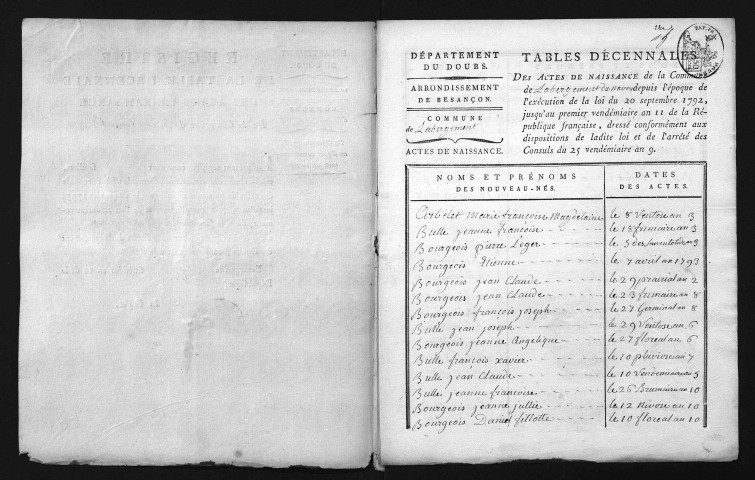 DÉPARTEMENT
DU DOUBS.
ARRONDISSEMENT
DE BESANÇON.
COMMUNE
de Labergement
ACTES DE NAISSANCE.
TABLES DÉCENNALES
DES ACTES DE NAISSANCE de la Commune
de Labergement du navois depuis l'époque de
l'exécution de la loi du 20 septembre 1792,
jusqu'au premier vendémiaire an 11 de la Ré-
publique française, dressé conformément aux
dispositions de ladite loi et de l'arrêté des
Consuls du 25 vendémiaire an 9.
NOMS ET PRÉNOMS
DES NOUVEAU-NÉS.
DATES
DES ACTES.
Arbelet marie françoise Magdelaine le 8 Ventose an 3
Bulle jeanne françoise le 18 frumaire an 3
Bourgeois pierre Leger le 5 des
Bourgeois Etienne le 7 avril an 1793
Bourgeois jean Claude le 29 prairial an 2
Bourgeois jean Claude le 23 frumaire an 8
Bourgeois françois joseph le 27 Germinal an 8
Bulle jean joseph le 29 Ventose an 6
Bourgeois jeanne Angelique le 27 floreal an 6
Bulle françois xavier le 10 pluviose an 7
Bulle jean Claude le 10 Vendemiaire an 5
Bulle jeanne françoise le 26 Brumaire an 10
Bourgeois jeanne jullie le 12 Nivose an 10
Bourgeois Daniel fillotte le 10 floreal an 10